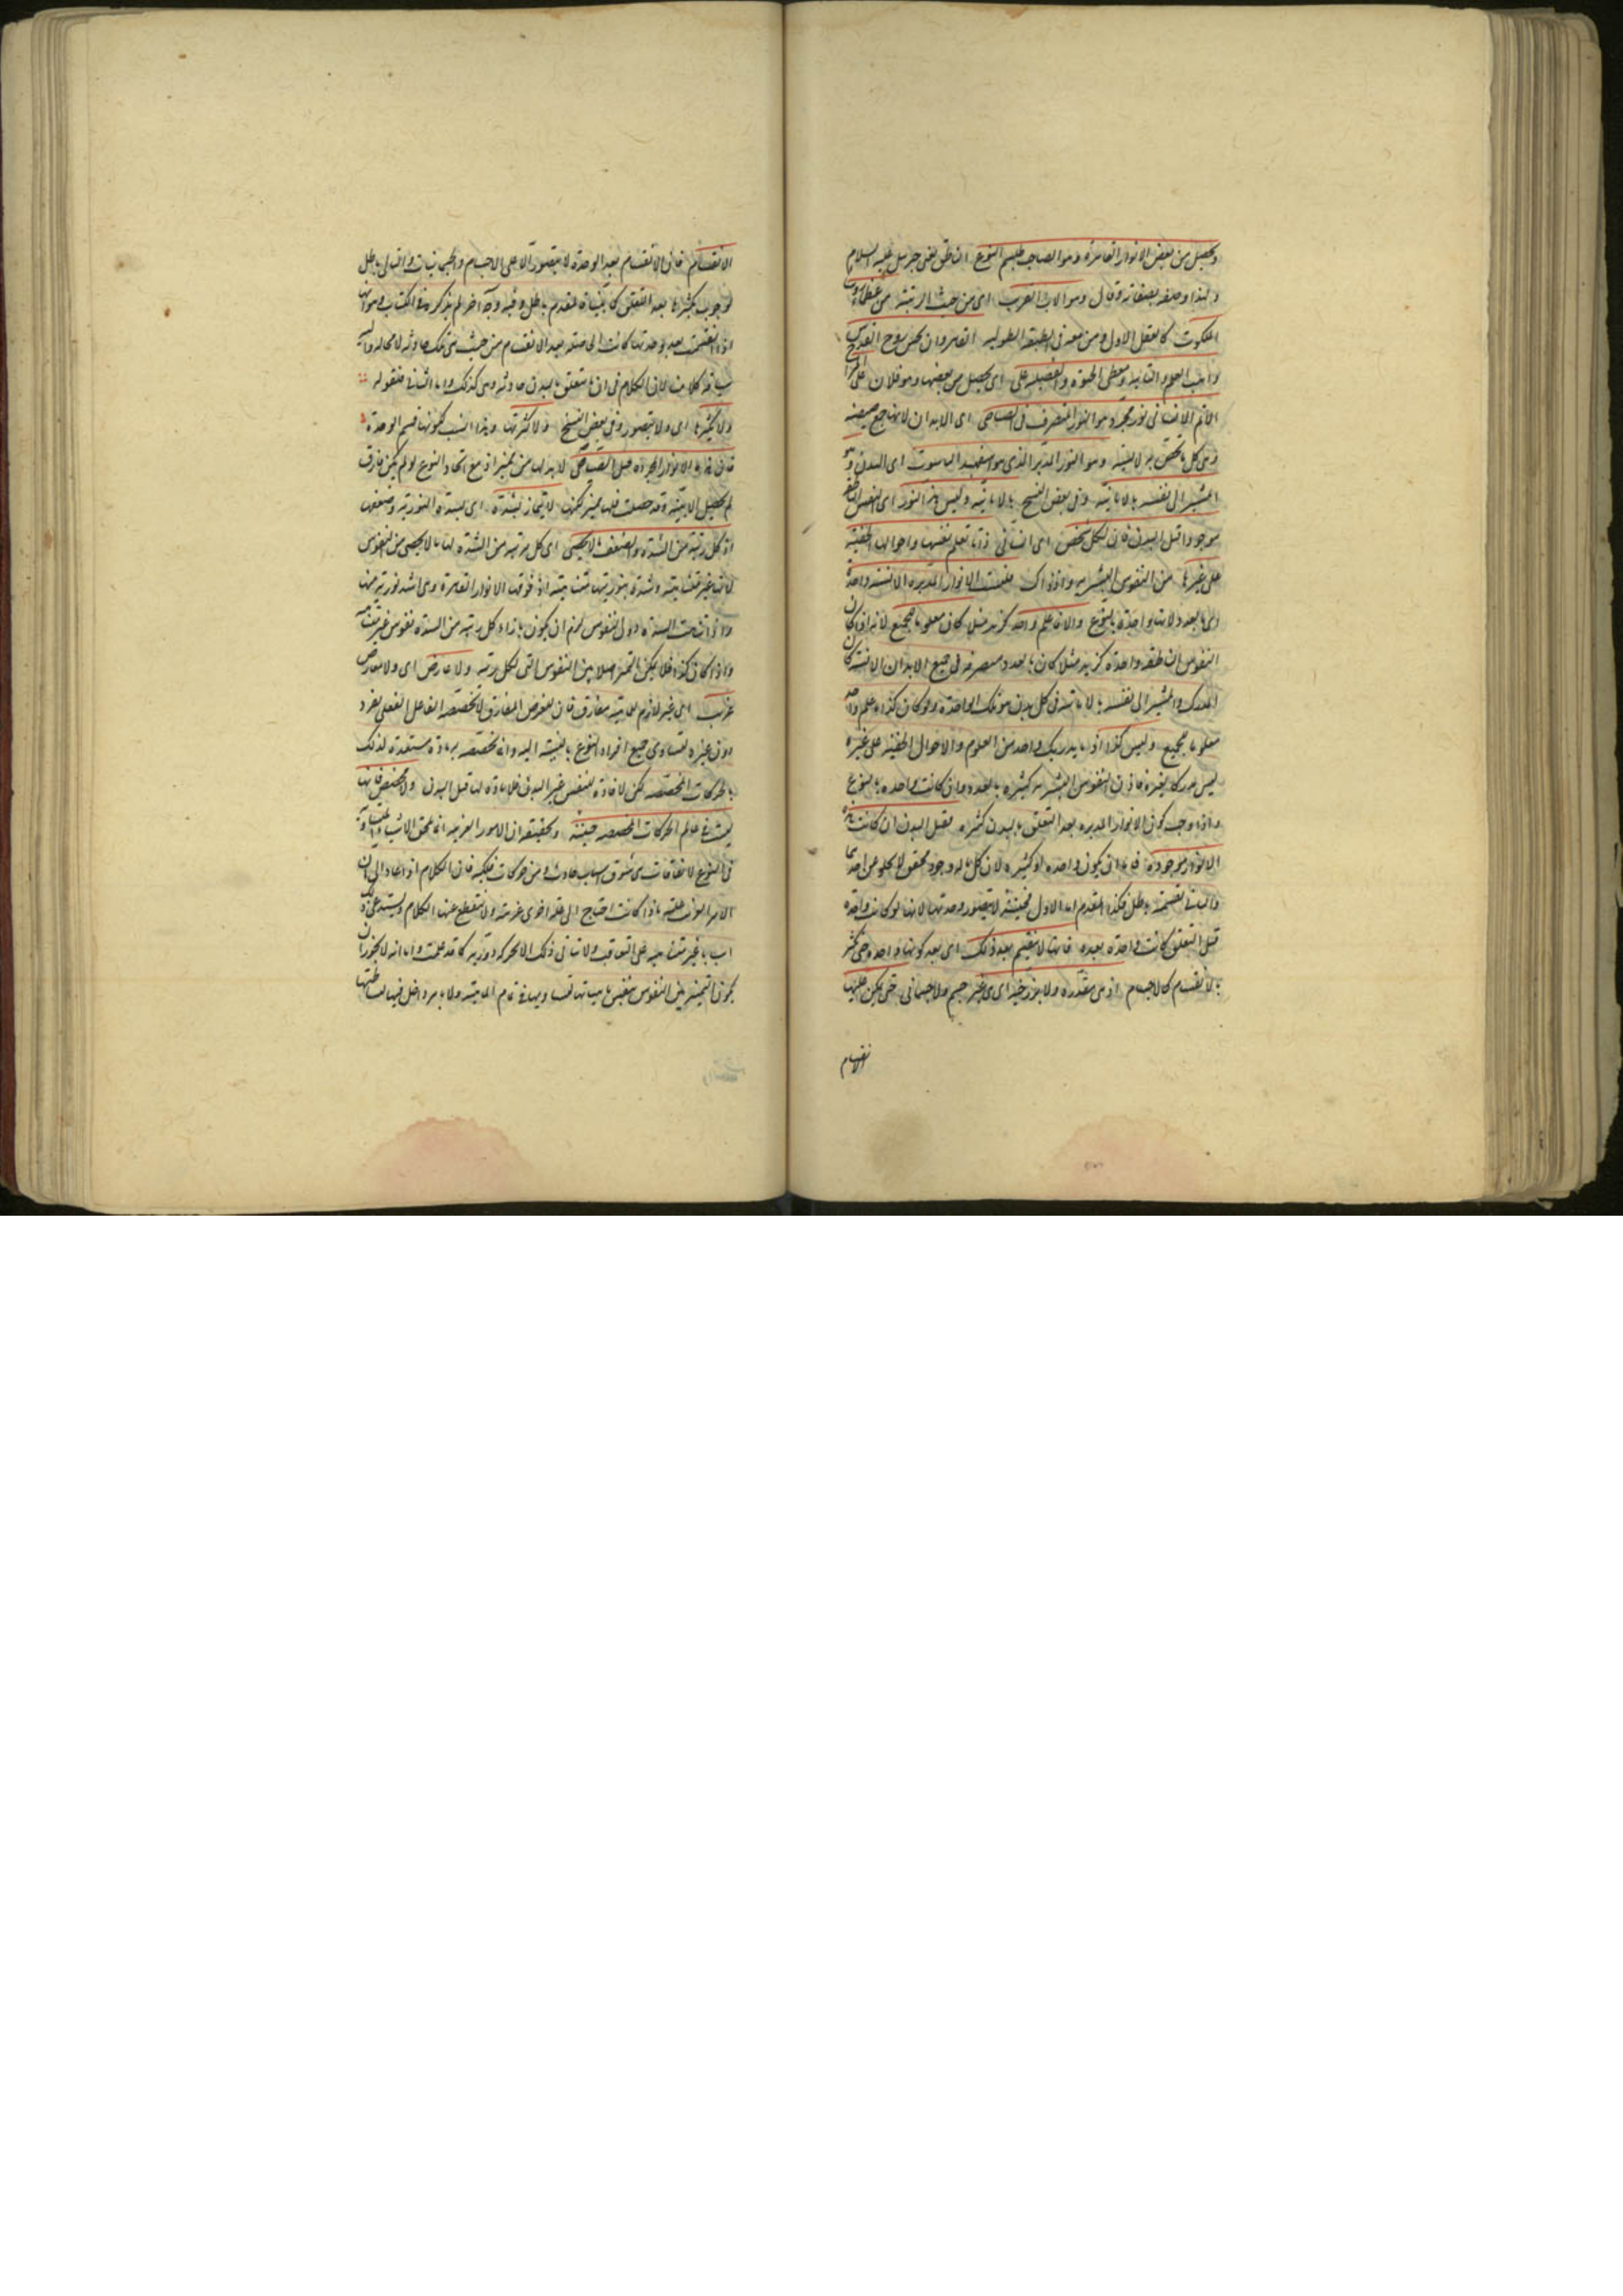 ويحصل من بعض الانوار القاهرة وهو صاحب طلسم النوع الناطق يعنى جبريل عليه السلام
ولهذا وصفه بصفاته وقال وهو الاب القريب اى من حيث الرتبة من عظماء رؤساء
الملكوت كالعقل الاول ومن معه فى الطبقة الطولية القاهر روان بخش روح القدس
واهب العلم والتاييد ومعطى الحيوة والفضيلة على اى يحصل من بعضها وهو فلان على المزاج
الاتم الانسانى نور مجرد هو النور المتصرف فى الصياصى اى الابدان لانها جمع صيصية
وهى كل ما تحصن به لانسية وهو النور المدبر الذى هو اسفهبد الناسوت اى البدن وهو
المشير الى نفسه بالانائية وفى بعض النسخ بالانانية وليس هذا النور اى النفس الناطقة
موجودا قبل البدن فان لكل شخص اى انسانى ذاتا تعلم نفسها واحوالها الخفية
على غيرها من النفوس البشرية واذ ذاك فليست الانوار المدبرة الانسية واحدة
اى بالعدد لانها واحدة بالنوع والا ما علم واحد كزيد مثلا كان معلوما للجميع لانه ان كان
النفوس الناطقة واحدة كزيد مثلا كان بالعدد متصرفة فى جميع الابدان الانسية كان
المدرك والمشير الى نفسه بالانائية فى كل بدن هو تلك الواحدة ولو كان كذا ما علم واحد
معلوما للجميع وليس كذا اذ ما يدركه واحد من العلوم والاحوال الخفية على غيره
ليس مدركا لغيره فاذن النفوس البشرية كثيرة بالعدد وان كانت واحدة بالنوع
واذا وجب كون الانوار المدبرة بعد التعلق بالبدن كثيرة فقبل البدن ان كانت هذه
الانوار موجودة فاما ان يكون واحدة او كثيرة لان كل ما له وجود محقق لا يخلو عن احدهما
والتالى بقسميه باطل فكذا المقدم اما الاول فحينئذ لا يتصور وحدتها لانها لو كانت واحدة
قبل التعلق كانت واحدة بعده فانها لا تنقسم بعد ذلك اى بعد كونها واحدة حتى تكثر
بالانقسام كالاجسام اذ هى متقدرة ولا برزخية اى هى غير جسم ولا جسمانى حتى يمكن عليها
الانقسام
الانقسام فان الانقسام بعد الوحدة لا يتصور الا على الاجسام والجسمانيات والتالى باطل
لوجوب تكثرها بعد التعلق كما بيناه فالمقدم باطل وفيه وجه آخر لم يذكره فى الكتاب وهو انها
اذا انقسمت بعد وحدتها كانت الحاصلة بعد الانقسام من حيث هى تلك حادثة لا محالة واليه
سياقة كلامنا لان الكلام فى ان ما يتعلق بالبدن حادثة وهى كذلك واما الثانى فلقوله
ولا تكثرها اى ولا يتصور وفى بعض النسخ ولا كثرتها وهذا انسب لكونها قسيم الوحدة
فان هذه الانوار المجردة قبل الصياصى لا بد لها من تمييز اذ مع اتحاد النوع لو لم يكن فارق
لم يحصل الاثنينية وقد حصلت فلها مميز لكنها لا تمتاز بشدة اى بشدة النورية وضعفها
اذ كل رتبة من الشدة والضعف ما لا يحصى اى كل مرتبة من الشدة لها ما لا يحصى من النفوس
لانها غير متناهية وشدة نوريتها متناهية اذ فوقها الانوار القاهرة وهى اشد نورية منها
واذا تناهت الشدة دون النفوس لزم ان يكون بازاء كل رتبة من الشدة نفوس غير متناهية
واذا كان كذا فلا يمكن التميز اصلا بين النفوس التى لكل رتبة ولا عارض اى ولا بعارض
غريب اى غير لازم للماهية مفارق فان العوارض المفارقة لا يخصصه الفاعل العقلى بفرد
دون غيره لتساوى جميع افراد النوع بالنسبة اليه وانما يخصصه به مادة مستعدة لذلك
بالحركات المخصصة لكن لا مادة للنفس غير البدن فلا مادة لها قبل البدن ولا مخصص فانها
ليست فى عالم الحركات المخصصة حينئذ وتحقيقه ان الامور الغريبة انما تلحق الاشياء المتساوية
فى النوع لاتفاقات هى شوق اسباب حادثة من حركات فلكية فان الكلام اذا عاد الى ان
الامر الموقت علته ماذا كانت احتاج الى علة اخرى غريبة ولا ينقطع عنها الكلام ويستدعى ذلك
اسبابا غير متناهية على التعاقب ولا يتاتى ذلك الا بحركة دورية كما قد علمت واما انه لا يجوز ان
يكون التميز بين النفوس بنفس ماهياتها لتساويها فى تمام الماهية ولا بامر داخل فيها لبساطتها